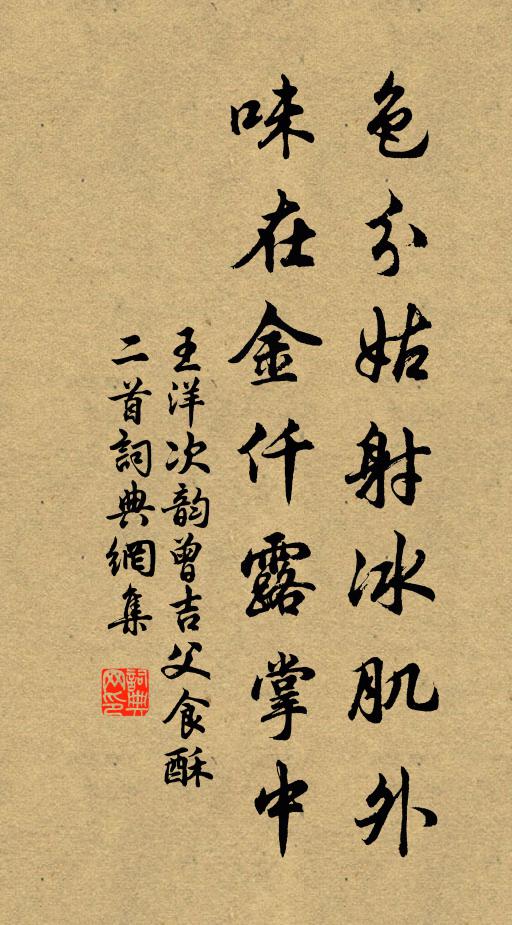 色分姑射冰肌外
味在金仟露掌中
王洋次韵曾吉父食酥
二首詞典網集
詞典
网印